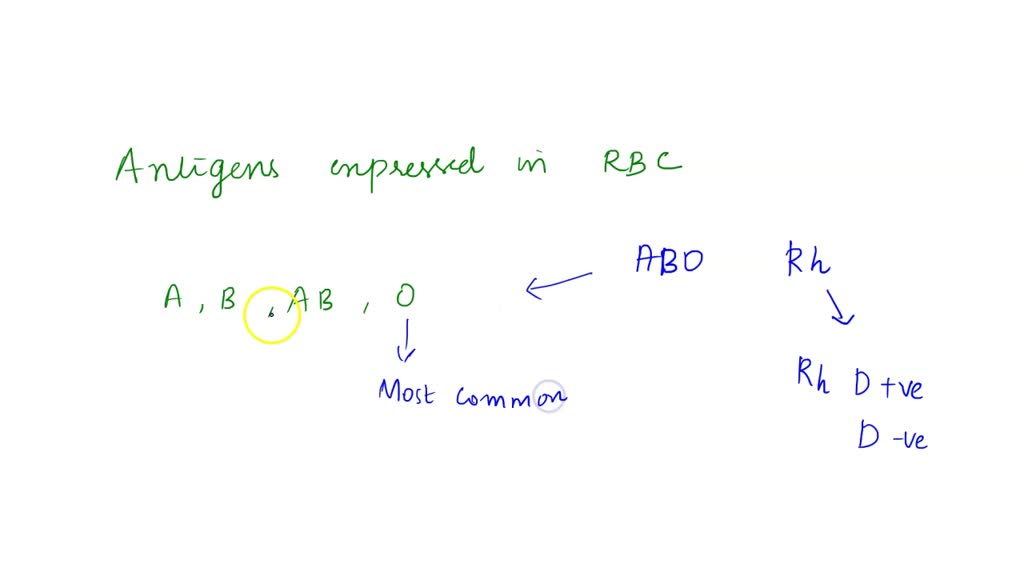 Antigens enpressed in RBC
ABO Rh
A, B, AB, O
Most common
Rh D +ve
D -ve